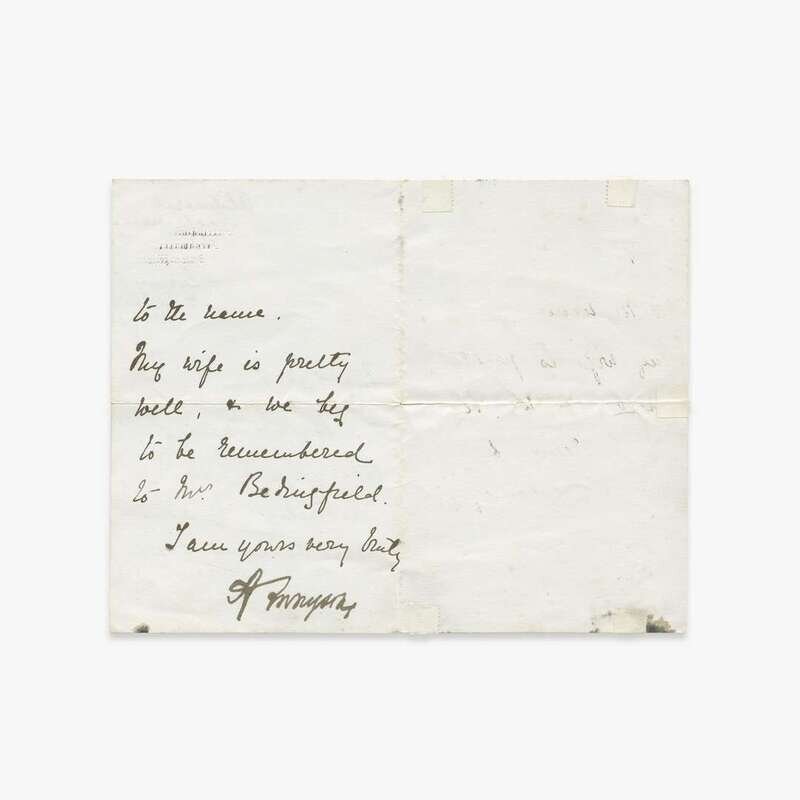 to the name.
My wife is pretty
well, & we beg
to be remembered
to Mrs Bedingfield.
I am yours very truly
A Tennyson